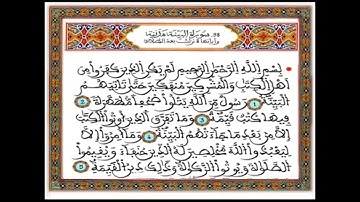 98 سورة البينة مدنية
وآياتها 8 نزلت بعد الطلاق
بسم الله الرحمن الرحيم لم يكن الذين كفروا من
اهل الكتب والمشركين منفكين حتى تاتيهم
البينة 1 رسول من الله يتلوا صحفا مطهرة 2
فيها كتب قيمة 3 وما تفرق الذين اوتوا الكتب
الا من بعد ما جاءتهم البينة 4 وما امروا الا
ليعبدوا الله مخلصين له الدين حنفاء ويقيموا
الصلوة ويوتوا الزكوة وذلك دين القيمة 5